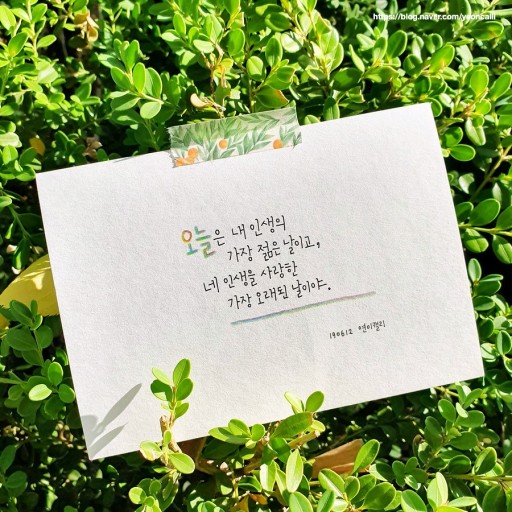 https://blog.naver.com/yeoncalli
오늘은 내 인생의
가장 젊은 날이고,
네 인생을 사랑한
가장 오래된 날이야.
190612 연이캘리